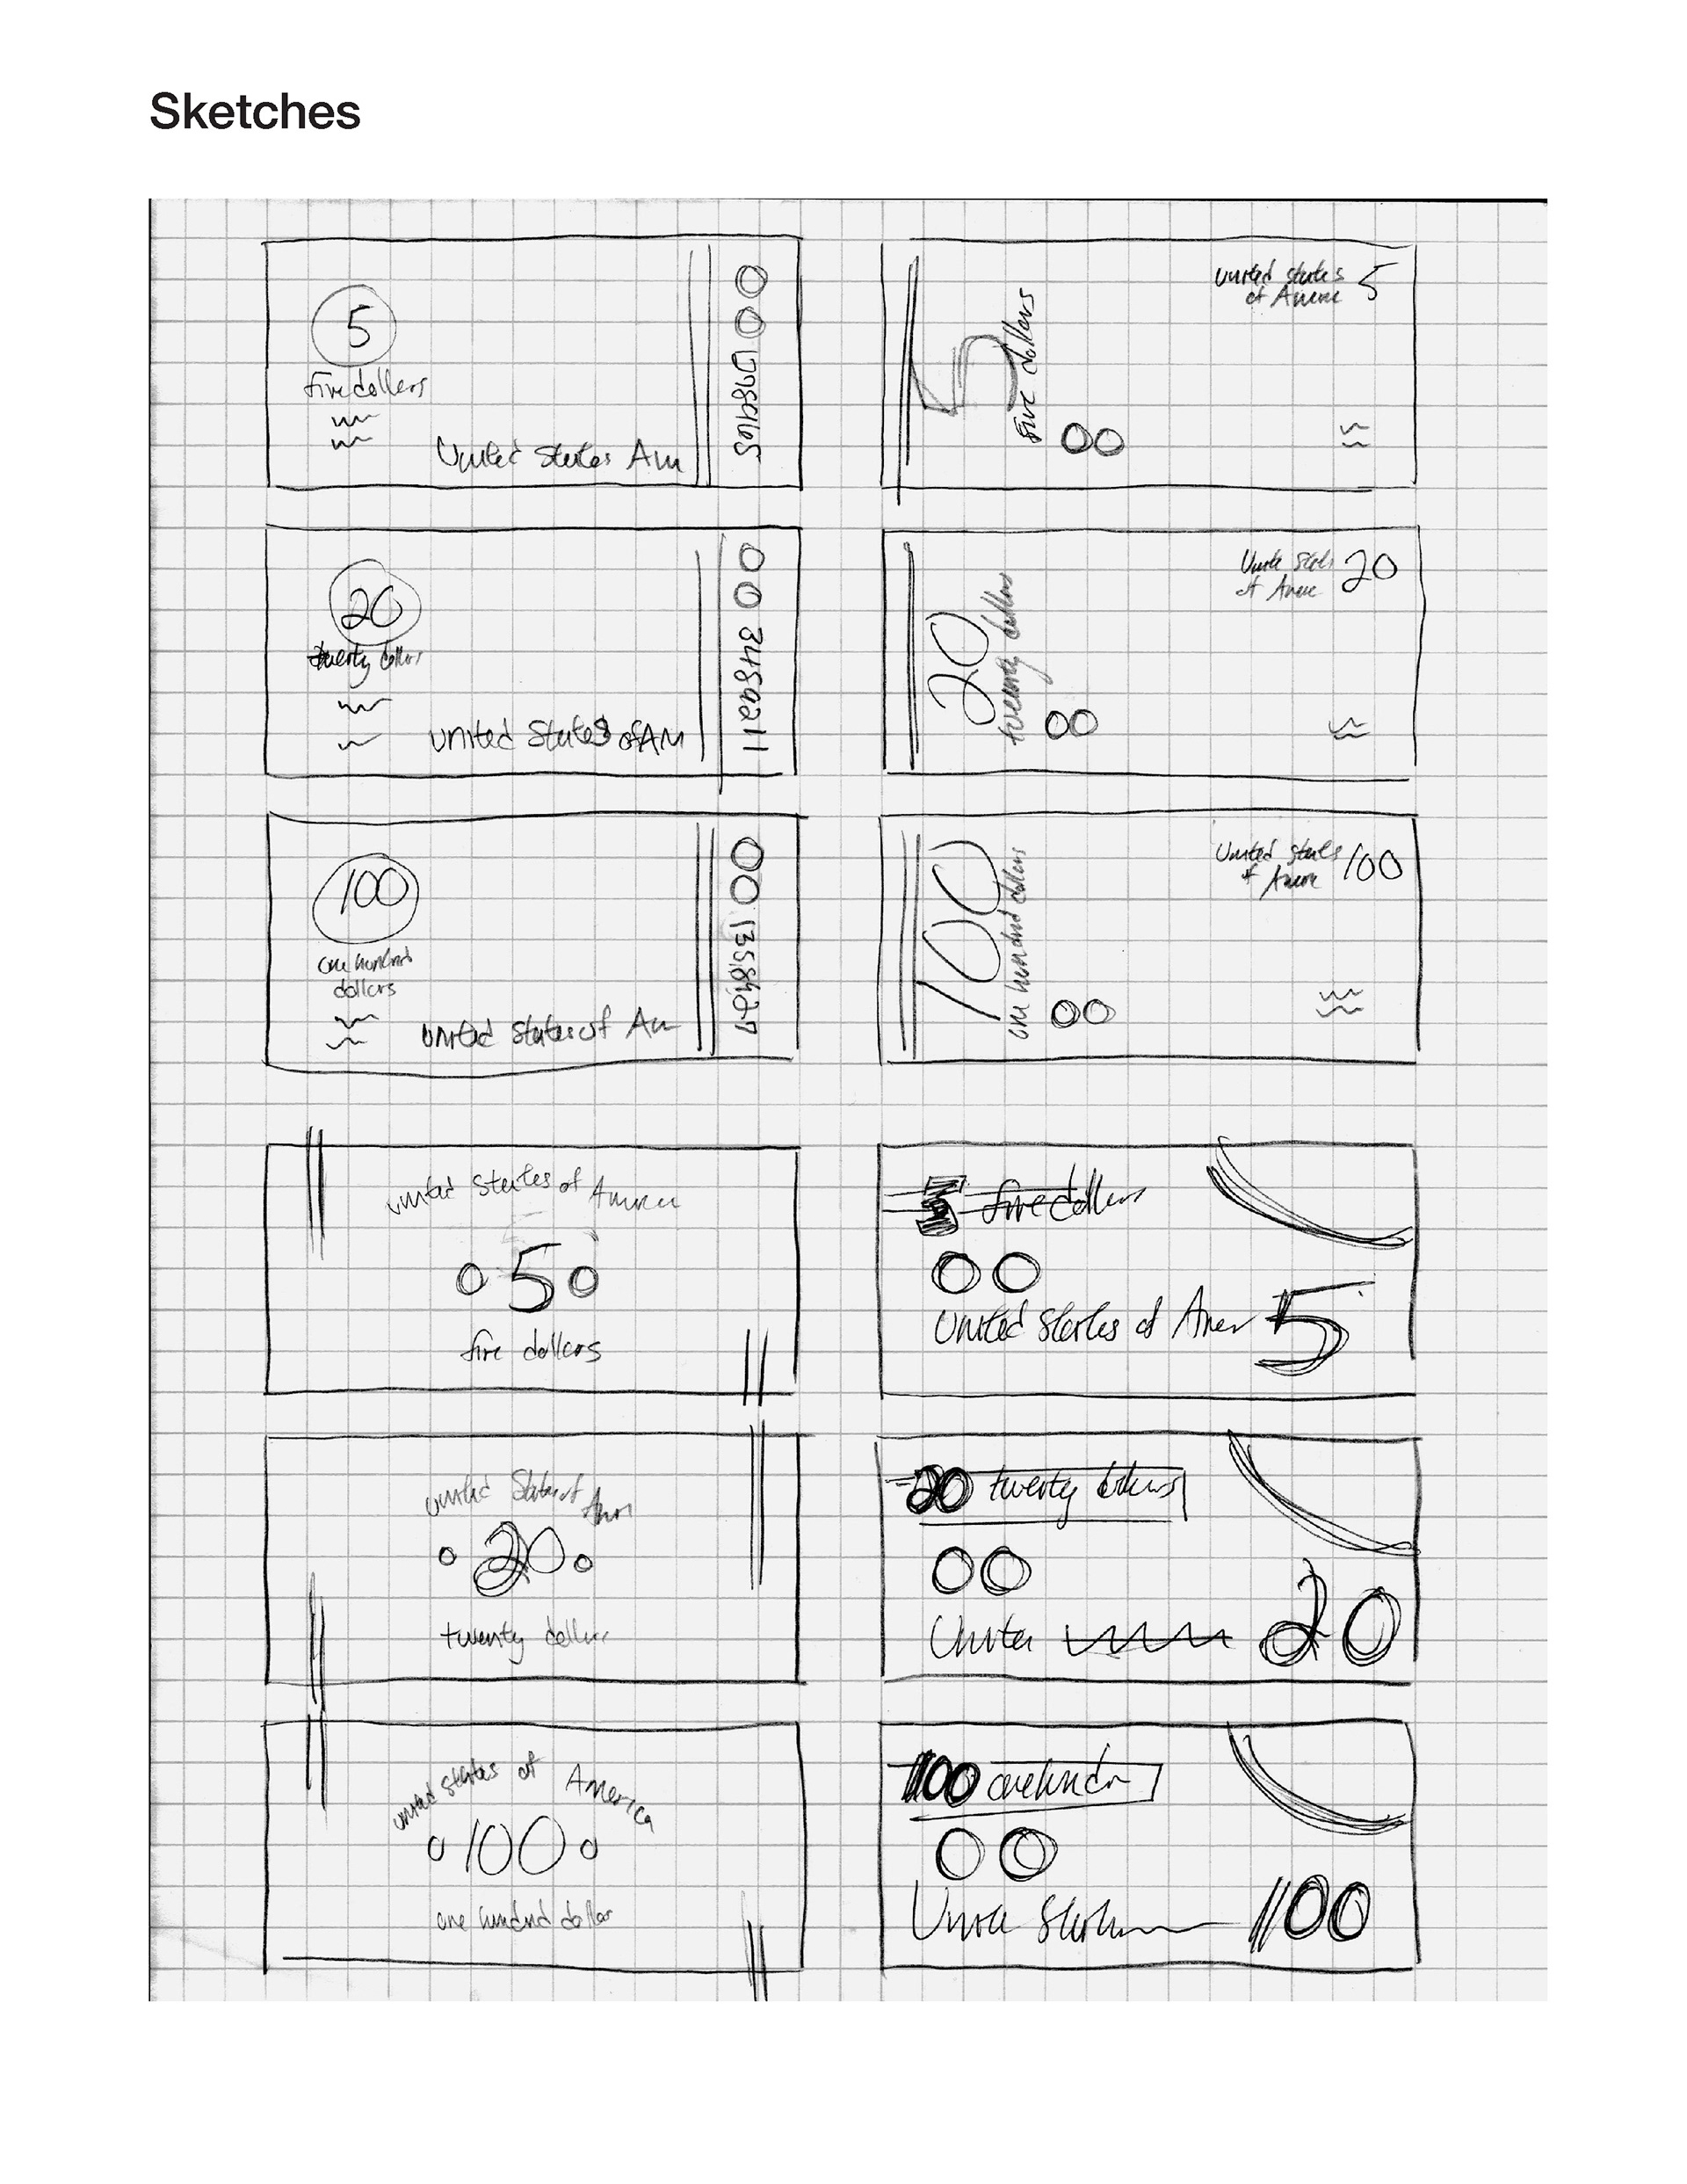 Sketches
5
five dollers
United States Am
00
United states
of Ame
5
5
five dollers
00
20
twenty
United States of AM
00 3489211
20
of Ame
20
twenty dollers
00
100
one hundred
dollers
United States of Am
00
United states
of Ame
100
100
one hundred dollers
00
United States of America
o 5 o
five dollers
5 five dollers
00
United States of Amer 5
United States of Amer
o 20 o
twenty dollers
20 twenty
00
20
united states of America
o 100 o
one hundred dollar
100
00
100